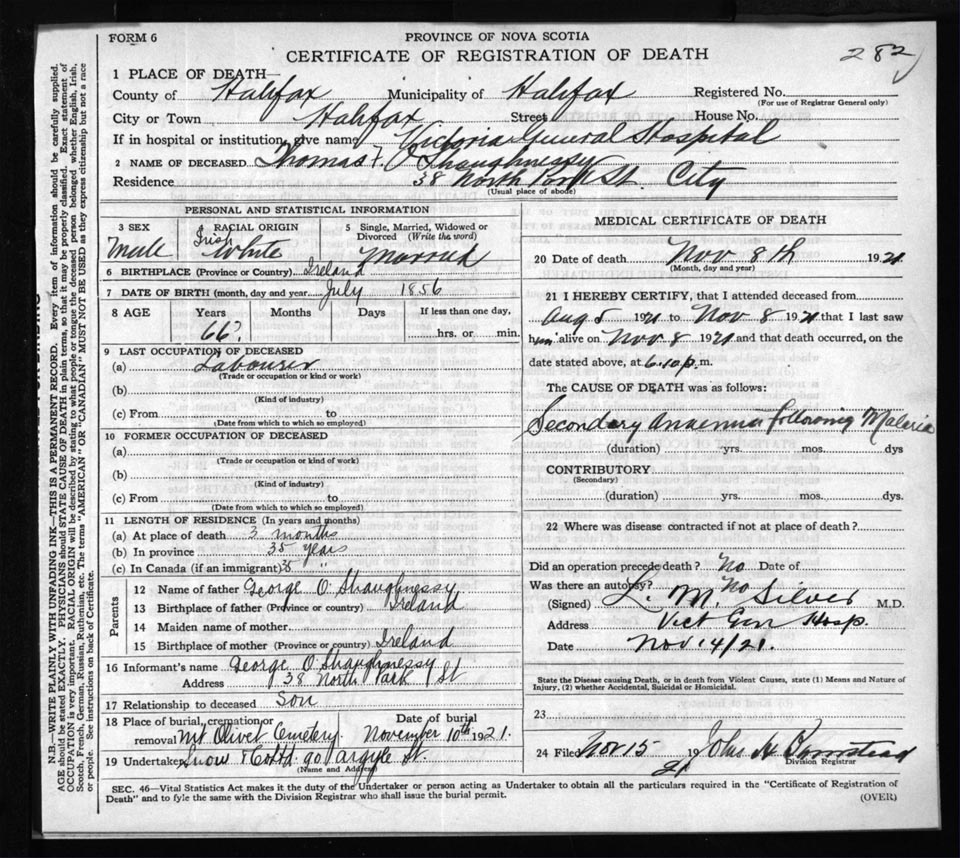 FORM 6
PROVINCE OF NOVA SCOTIA
CERTIFICATE OF REGISTRATION OF DEATH
282
1 PLACE OF DEATH—
County of Halifax Municipality of Halifax Registered No.
(For use of Registrar General only)
City or Town Halifax Street House No.
If in hospital or institution, give name Victoria General Hospital
2 NAME OF DECEASED Thomas F. O'Shaughnessy
Residence 38 North Park St. City
(Usual place of abode)
PERSONAL AND STATISTICAL INFORMATION
3 SEX 4 RACIAL ORIGIN 5 Single, Married, Widowed or Divorced (Write the word)
Male Irish White Married
6 BIRTHPLACE (Province or Country) Ireland
7 DATE OF BIRTH (month, day and year) July 1856
8 AGE Years Months Days If less than one day,
66? hrs. or min.
9 LAST OCCUPATION OF DECEASED
(a) Labourer
(Trade or occupation or kind or work)
(b)
(Kind of industry)
(c) From to
(Date from which to which so employed)
10 FORMER OCCUPATION OF DECEASED
(a)
(Trade or occupation or kind of work)
(b)
(Kind of industry)
(c) From to
(Date from which to which so employed)
11 LENGTH OF RESIDENCE (In years and months)
(a) At place of death 3 months
(b) In province 35 years
(c) In Canada (if an immigrant) 35 "
Parents
12 Name of father George O'Shaughnessy
13 Birthplace of father (Province or country) Ireland
14 Maiden name of mother
15 Birthplace of mother (Province or country) Ireland
16 Informant's name George O'Shaughnessy
Address 38 North Park St
17 Relationship to deceased Son
18 Place of burial, cremation or removal Mt Olivet Cemetery Date of burial November 10th 1921.
19 Undertaker Snow & Co Ltd. 90 Argyle St.
(Name and Address)
MEDICAL CERTIFICATE OF DEATH
20 Date of death Nov 8th 1921
(Month, day and year)
21 I HEREBY CERTIFY, that I attended deceased from
Aug 5 1921 to Nov 8 1921 that I last saw
him alive on Nov 8 1921 and that death occurred, on the
date stated above, at 6.10 p.m.
The CAUSE OF DEATH was as follows:
Secondary Anaemia following Malaria
(duration) yrs. mos. dys
CONTRIBUTORY
(Secondary)
(duration) yrs. mos. dys.
22 Where was disease contracted if not at place of death?
Did an operation precede death? No Date of
Was there an autopsy? No
(Signed) L. M. Silver M.D.
Address Vict Gen Hosp.
Date Nov 14/21.
State the Disease causing Death, or in death from Violent Causes, state (1) Means and Nature of
Injury, (2) whether Accidental, Suicidal or Homicidal.
23
24 Filed Nov 15 19 21 John H Barnstead
Division Registrar
SEC. 46—Vital Statistics Act makes it the duty of the Undertaker or person acting as Undertaker to obtain all the particulars required in the "Certificate of Registration of
Death"—and to fyle the same with the Division Registrar who shall issue the burial permit.
(OVER)
N.B.—WRITE PLAINLY WITH UNFADING INK—THIS IS A PERMANENT RECORD. Every item of information should be carefully supplied.
AGE should be stated EXACTLY. PHYSICIANS should STATE CAUSE OF DEATH in plain terms, so that it may be properly classified. Exact statement of
OCCUPATION is very important. RACIAL ORIGIN will be described by stating to what people or tongue the deceased person belonged whether English, Irish,
Scotch, French, German, Russian, Ruthenian, etc. The terms "AMERICAN" OR "CANADIAN" MUST NOT BE USED as they express citizenship but not a race
or people. See instructions on back of Certificate.